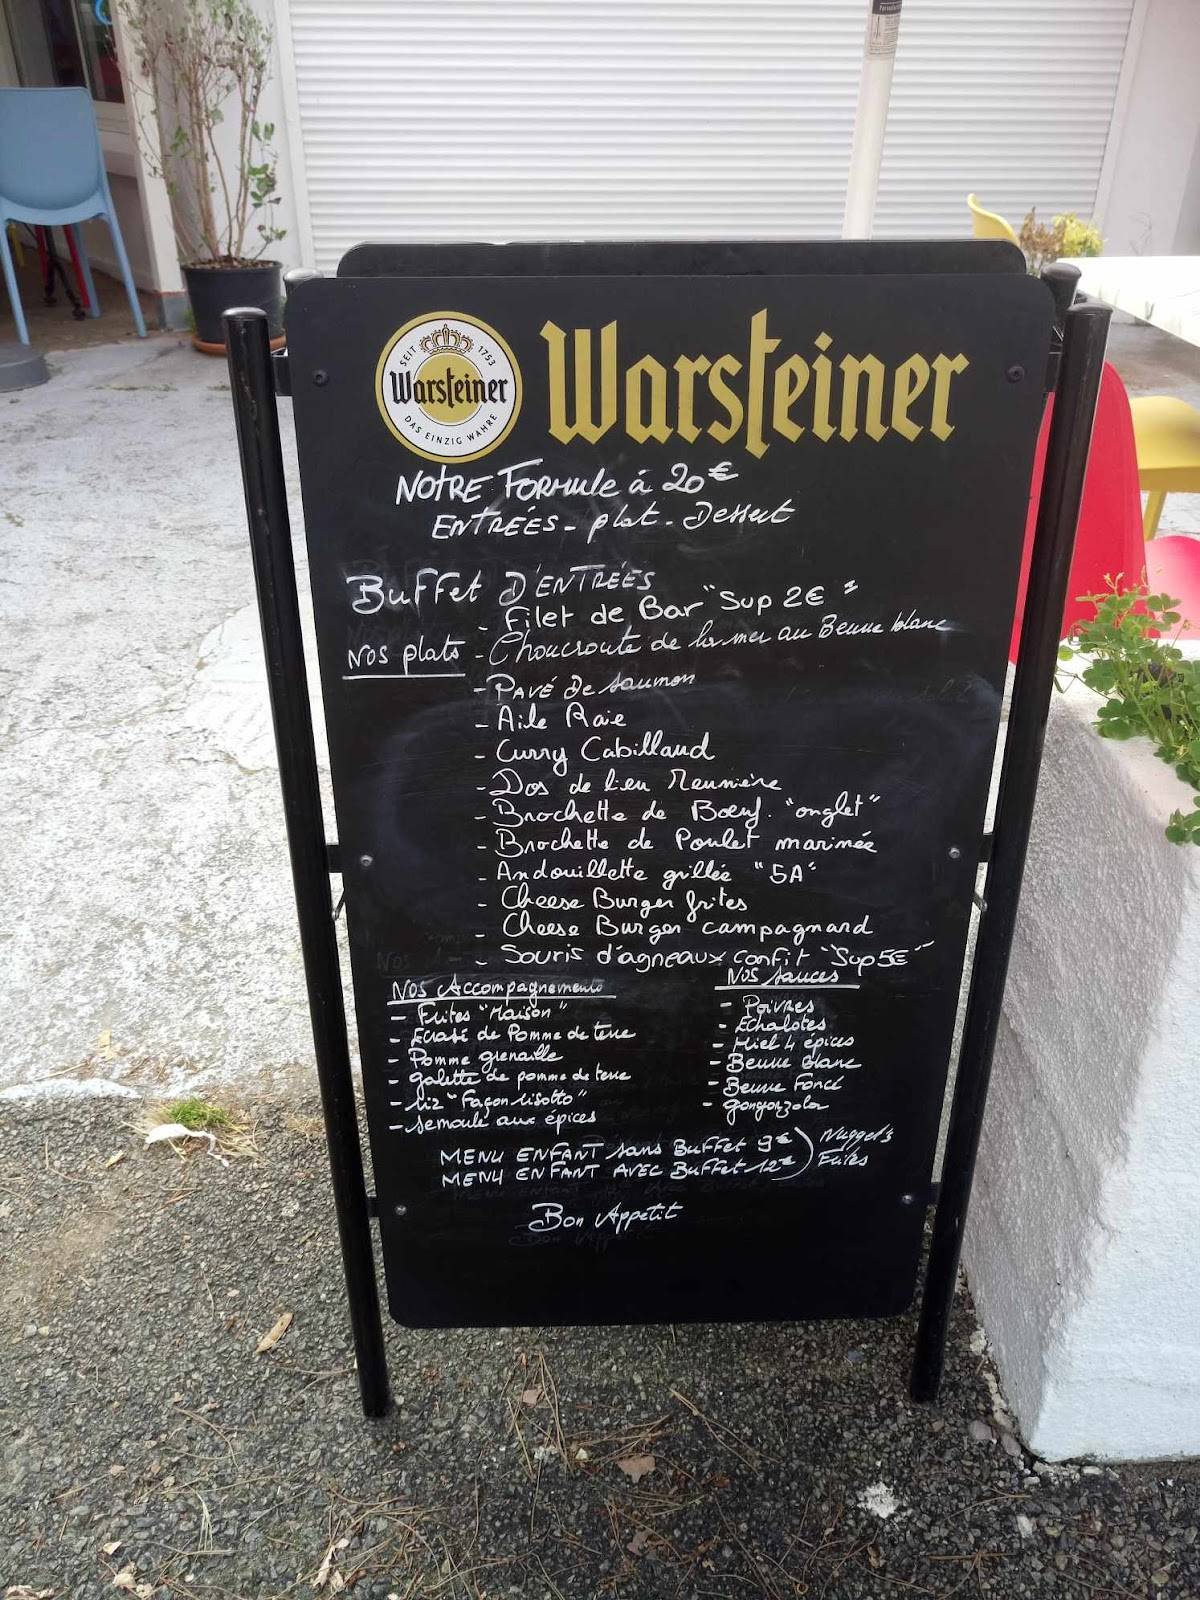 SEIT 1753
Warsteiner
DAS EINZIG WAHRE
Warsteiner
NOTRE FORMULE à 20€
ENTRÉES - plat - Dessert
BUFFET D'ENTRÉES
- Filet de Bar "Sup 2€"
Nos plats - Choucroute de la mer au Beurre blanc
- PAVÉ De saumon
- Aile Raie
- Curry Cabillaud
- Dos de lieu Meunière
- Brochette de Bœuf. "onglet"
- Brochette de Poulet marinée
- Andouillette grillée "5A"
- Cheese Burger frites
- Cheese Burger campagnard
- Souris d'agneaux confit "Sup 5€"
Nos Accompagnements
- Frites "Maison"
- Ecrasé de Pomme de terre
- Pomme grenaille
- galette de pomme de terre
- riz "Façon risotto"
- semoule aux épices
Nos sauces
- Poivres
- Echalotes
- Miel 4 épices
- Beurre blanc
- Beurre Foncé
- gongonzola
MENU ENFANT sans Buffet 9€ ) Nuggets
MENU ENFANT AVEC Buffet 12€ ) Frites
Bon Appetit